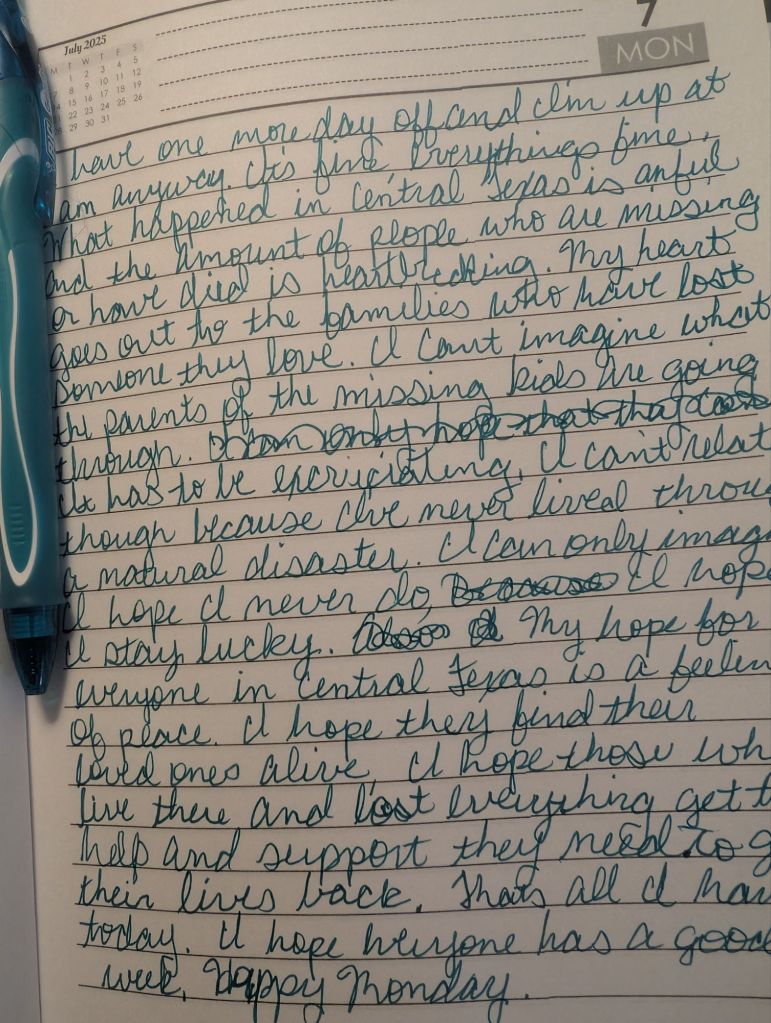 July 2025
M T W T F S S
1 2 3 4 5
8 9 10 11 12
14 15 16 17 18 19
22 23 24 25 26
28 29 30 31
7
MON
have one more day off and I'm up at
am anyway. It's fine. Everythings fine.
What happened in Central Texas is awful
and the amount of people who are missing
or have died is heartbreaking. My heart
goes out to the families who have lost
someone they love. I can't imagine what
the parents of the missing kids are going
through. I can only hope that they can
It has to be excruciating. I can't relat
though because I've never lived throu
a natural disaster. I can only imag
I hope I never do, because I hope
I stay lucky. My hope for
everyone in Central Texas is a feelin
of peace. I hope they find their
loved ones alive. I hope those wh
live there and lost everything get t
help and support they need to g
their lives back. Thats all I hav
today. I hope everyone has a good
week. Happy Monday.